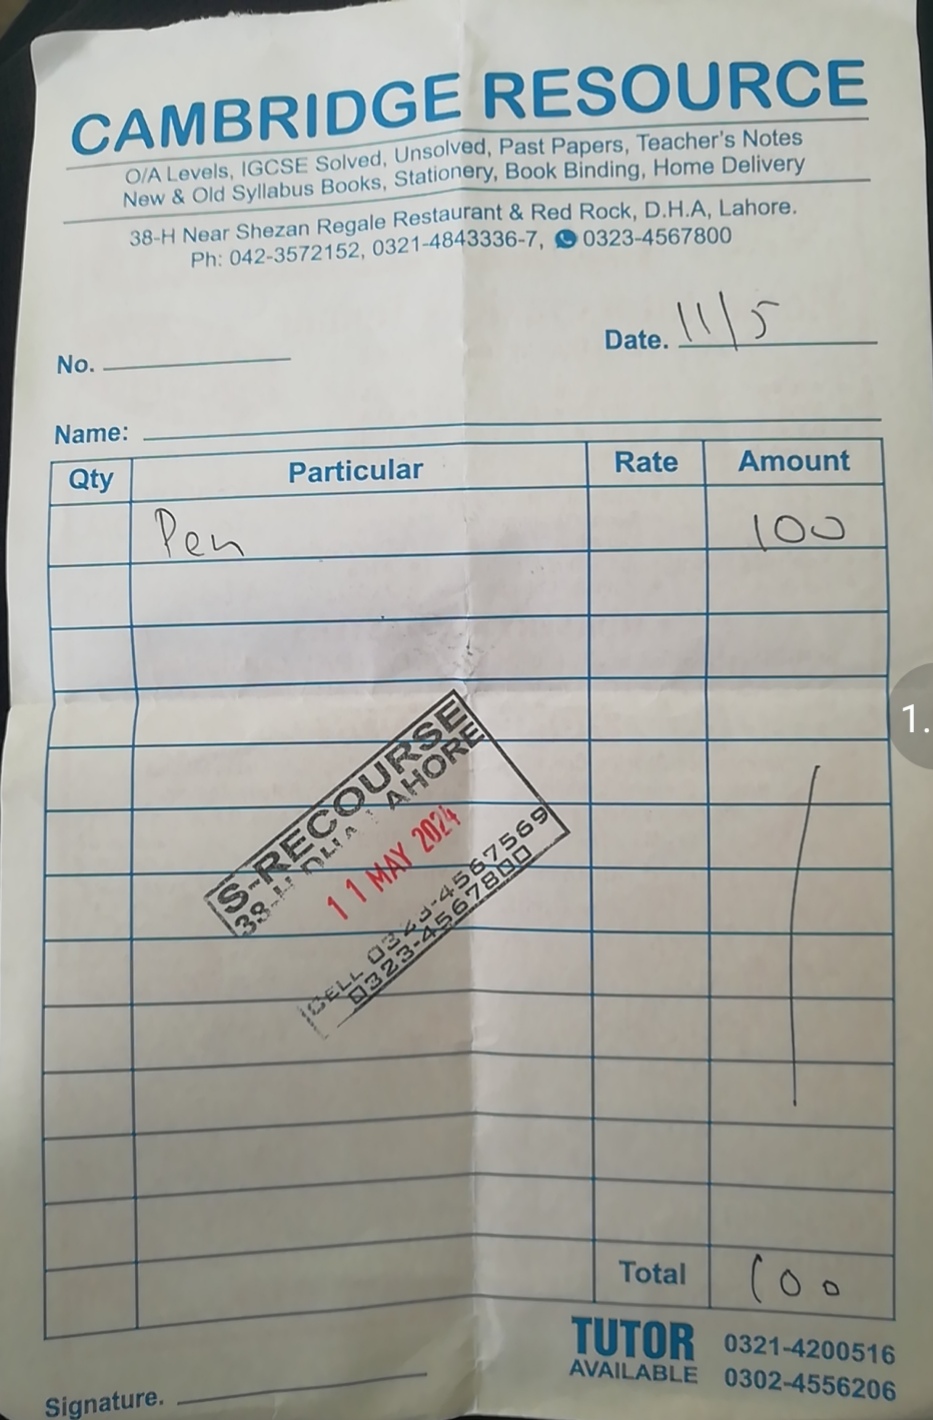 CAMBRIDGE RESOURCE
O/A Levels, IGCSE Solved, Unsolved, Past Papers, Teacher's Notes
New & Old Syllabus Books, Stationery, Book Binding, Home Delivery
38-H Near Shezan Regale Restaurant & Red Rock, D.H.A, Lahore.
Ph: 042-3572152, 0321-4843336-7, 0323-4567800
No. Date. 11/5
Name:
Qty Particular Rate Amount
Pen 100
S-RECOURSE
38-H LAHORE
11 MAY 2024
CELL 0323-4567569
0323-4567800
1.
Total 100
TUTOR 0321-4200516
AVAILABLE 0302-4556206
Signature.